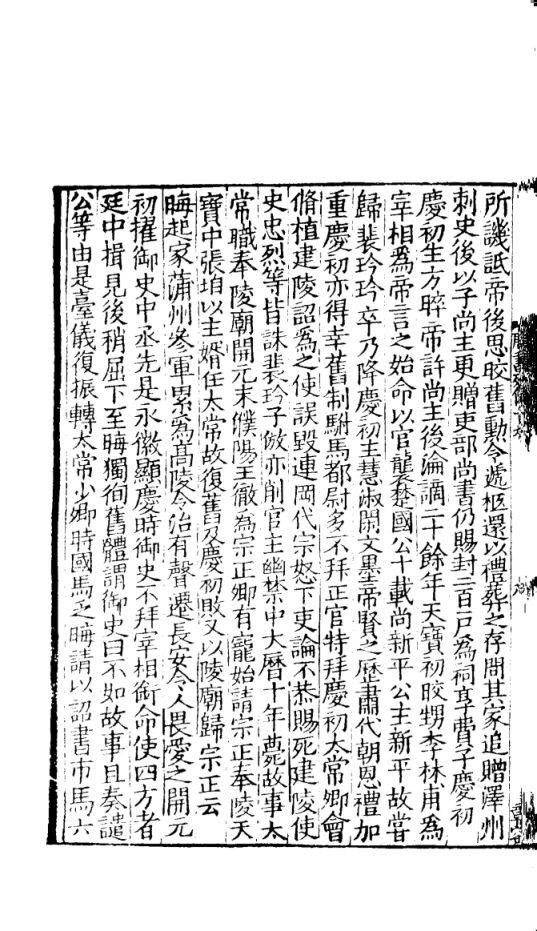 所譏詆帝後思晈舊勳令遞柩還以禮葬之存問其家追贈澤州
刺史後以子尚主更贈吏部尚書仍賜封二百戶爲祠享費子慶初
慶初生方晬帝許尚主後淪謫二十餘年天寶初晈甥李林甫爲
宰相爲帝言之始命以官襲楚國公十載尚新平公主新平故嘗
歸裴玪玪卒乃降慶初主慧淑閑文墨帝賢之歷肅代朝恩禮加
重慶初亦得幸舊制駙馬都尉多不拜正官特拜慶初太常卿會
脩植建陵詔爲之使誤毀連岡代宗怒下吏論不恭賜死建陵使
史忠烈等皆誅裴玪子倣亦削官主幽禁中大曆十年薨故事太
常職奉陵廟開元末濮陽王徹爲宗正卿有寵始請宗正奉陵天
寶中張垍以主婿任太常故復舊及慶初敗又以陵廟歸宗正云
晦起家蒲州參軍累爲高陵令治有聲遷長安令人畏愛之開元
初擢御史中丞先是永徽顯慶時御史不拜宰相銜命使四方者
廷中揖見後稍屈下至晦獨徇舊體謂御史曰不如故事且奏譴
公等由是臺儀復振轉太常少卿時國馬乏晦請以詔書市馬六